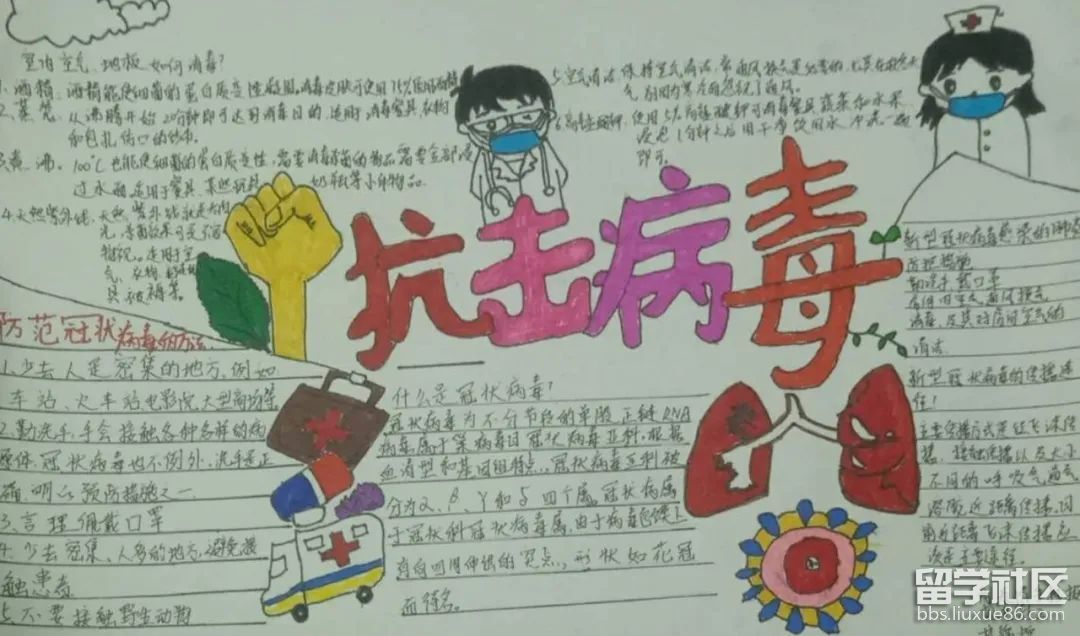 室内空气、地板如何消毒?
1.酒精:酒精能使细菌的蛋白质变性凝固,消毒皮肤可使用75%医用酒精
2.蒸煮:从沸腾开始20分钟即可达到消毒目的,适用消毒餐具、衣物
和包扎伤口的纱布。
3.煮沸:100℃也能使细菌的蛋白质变性,需要消毒杀菌的物品需要全部浸
过水面,适用于餐具、某些玩具、奶瓶等小件物品.
4.天然紫外线:天然紫外线就是太阳
光,
物品。适用于空
气、衣物、
具、被褥等。
5.空气清洁:保持空气清洁,
气,别因为寒冷而忽视了通风。
使用
液泡1分钟之后用干净饮用水冲洗一遍
即可。
抗击病毒
防范冠状病毒的方法
1.少去人是密集的地方,例如
车站、火车站电影院、大型商场等
2.勤洗手,手会接触各种多样的病
原体,冠状病毒也不例外,洗手是正
确,明心预防措施之一
3.合理佩戴口罩
4.少去密集、人多的地方,避免接
触患者
5.不要接触野生动物
什么是冠状病毒?
冠状病毒为不分节段的单股正链RNA
病毒,属于巢病毒目冠状病毒亚科,根据
血清型和基因组特点,冠状病毒亚科被
分为α、β、γ和δ四个属,冠状病属
于冠状科冠状病毒属,由于病毒包膜上
有向四周伸出的突点,形状如花冠
而得名。
新型冠状病毒感染的肺炎
防护措施
勤洗手 戴口罩
居住日常通风换气
消毒,及其对房间空气的
清洁
新型冠状病毒的传播途
径!
主要传播方式是经飞沫传
播、接触传播以及大小
不同的呼吸气道气
溶胶近距离传播,目
前近距离飞沫传播应
该是主要途径。
留学社区
bbs.liuxue86.com